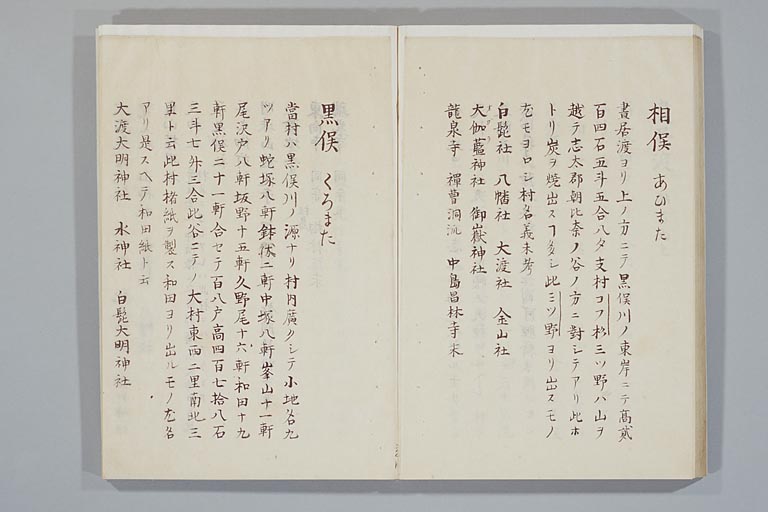 相俣 あひまた
書居渡ヨリ上ノ方ニテ黒俣川ノ東岸ニテ高貳
百四石五斗五合八夕支村コフ杉三ツ野ハ山ヲ
越テ志太郡朝比奈ノ谷ノ方ニ對シテアリ此ホ
トリ炭ヲ焼出スヿ多シ此三ツ野ヨリ出スモノ
尤モヨロシ村名義未考
白髭社 八幡社 大渡社 金山社
大伽藍神社 御嶽神社
龍泉寺 禪曹洞派 中島昌林寺末
黒俣 くろまた
當村ハ黒俣川ノ源ナリ村内廣クシテ小地名九
ツアリ蛇塚八軒鉢窪二軒中塚八軒峯山十一軒
尾沢戸八軒坂野十五軒久野尾十六軒和田十九
軒黒俣二十一軒合セテ百八戸高四百七拾八石
三斗七升三合此谷ニテノ大村東西二里南北三
里ト云此村楮紙ヲ製ス和田ヨリ出ルモノ尤名
アリ是スヘテ和田紙ト云
大渡大明神社 水神社 白髭大明神社